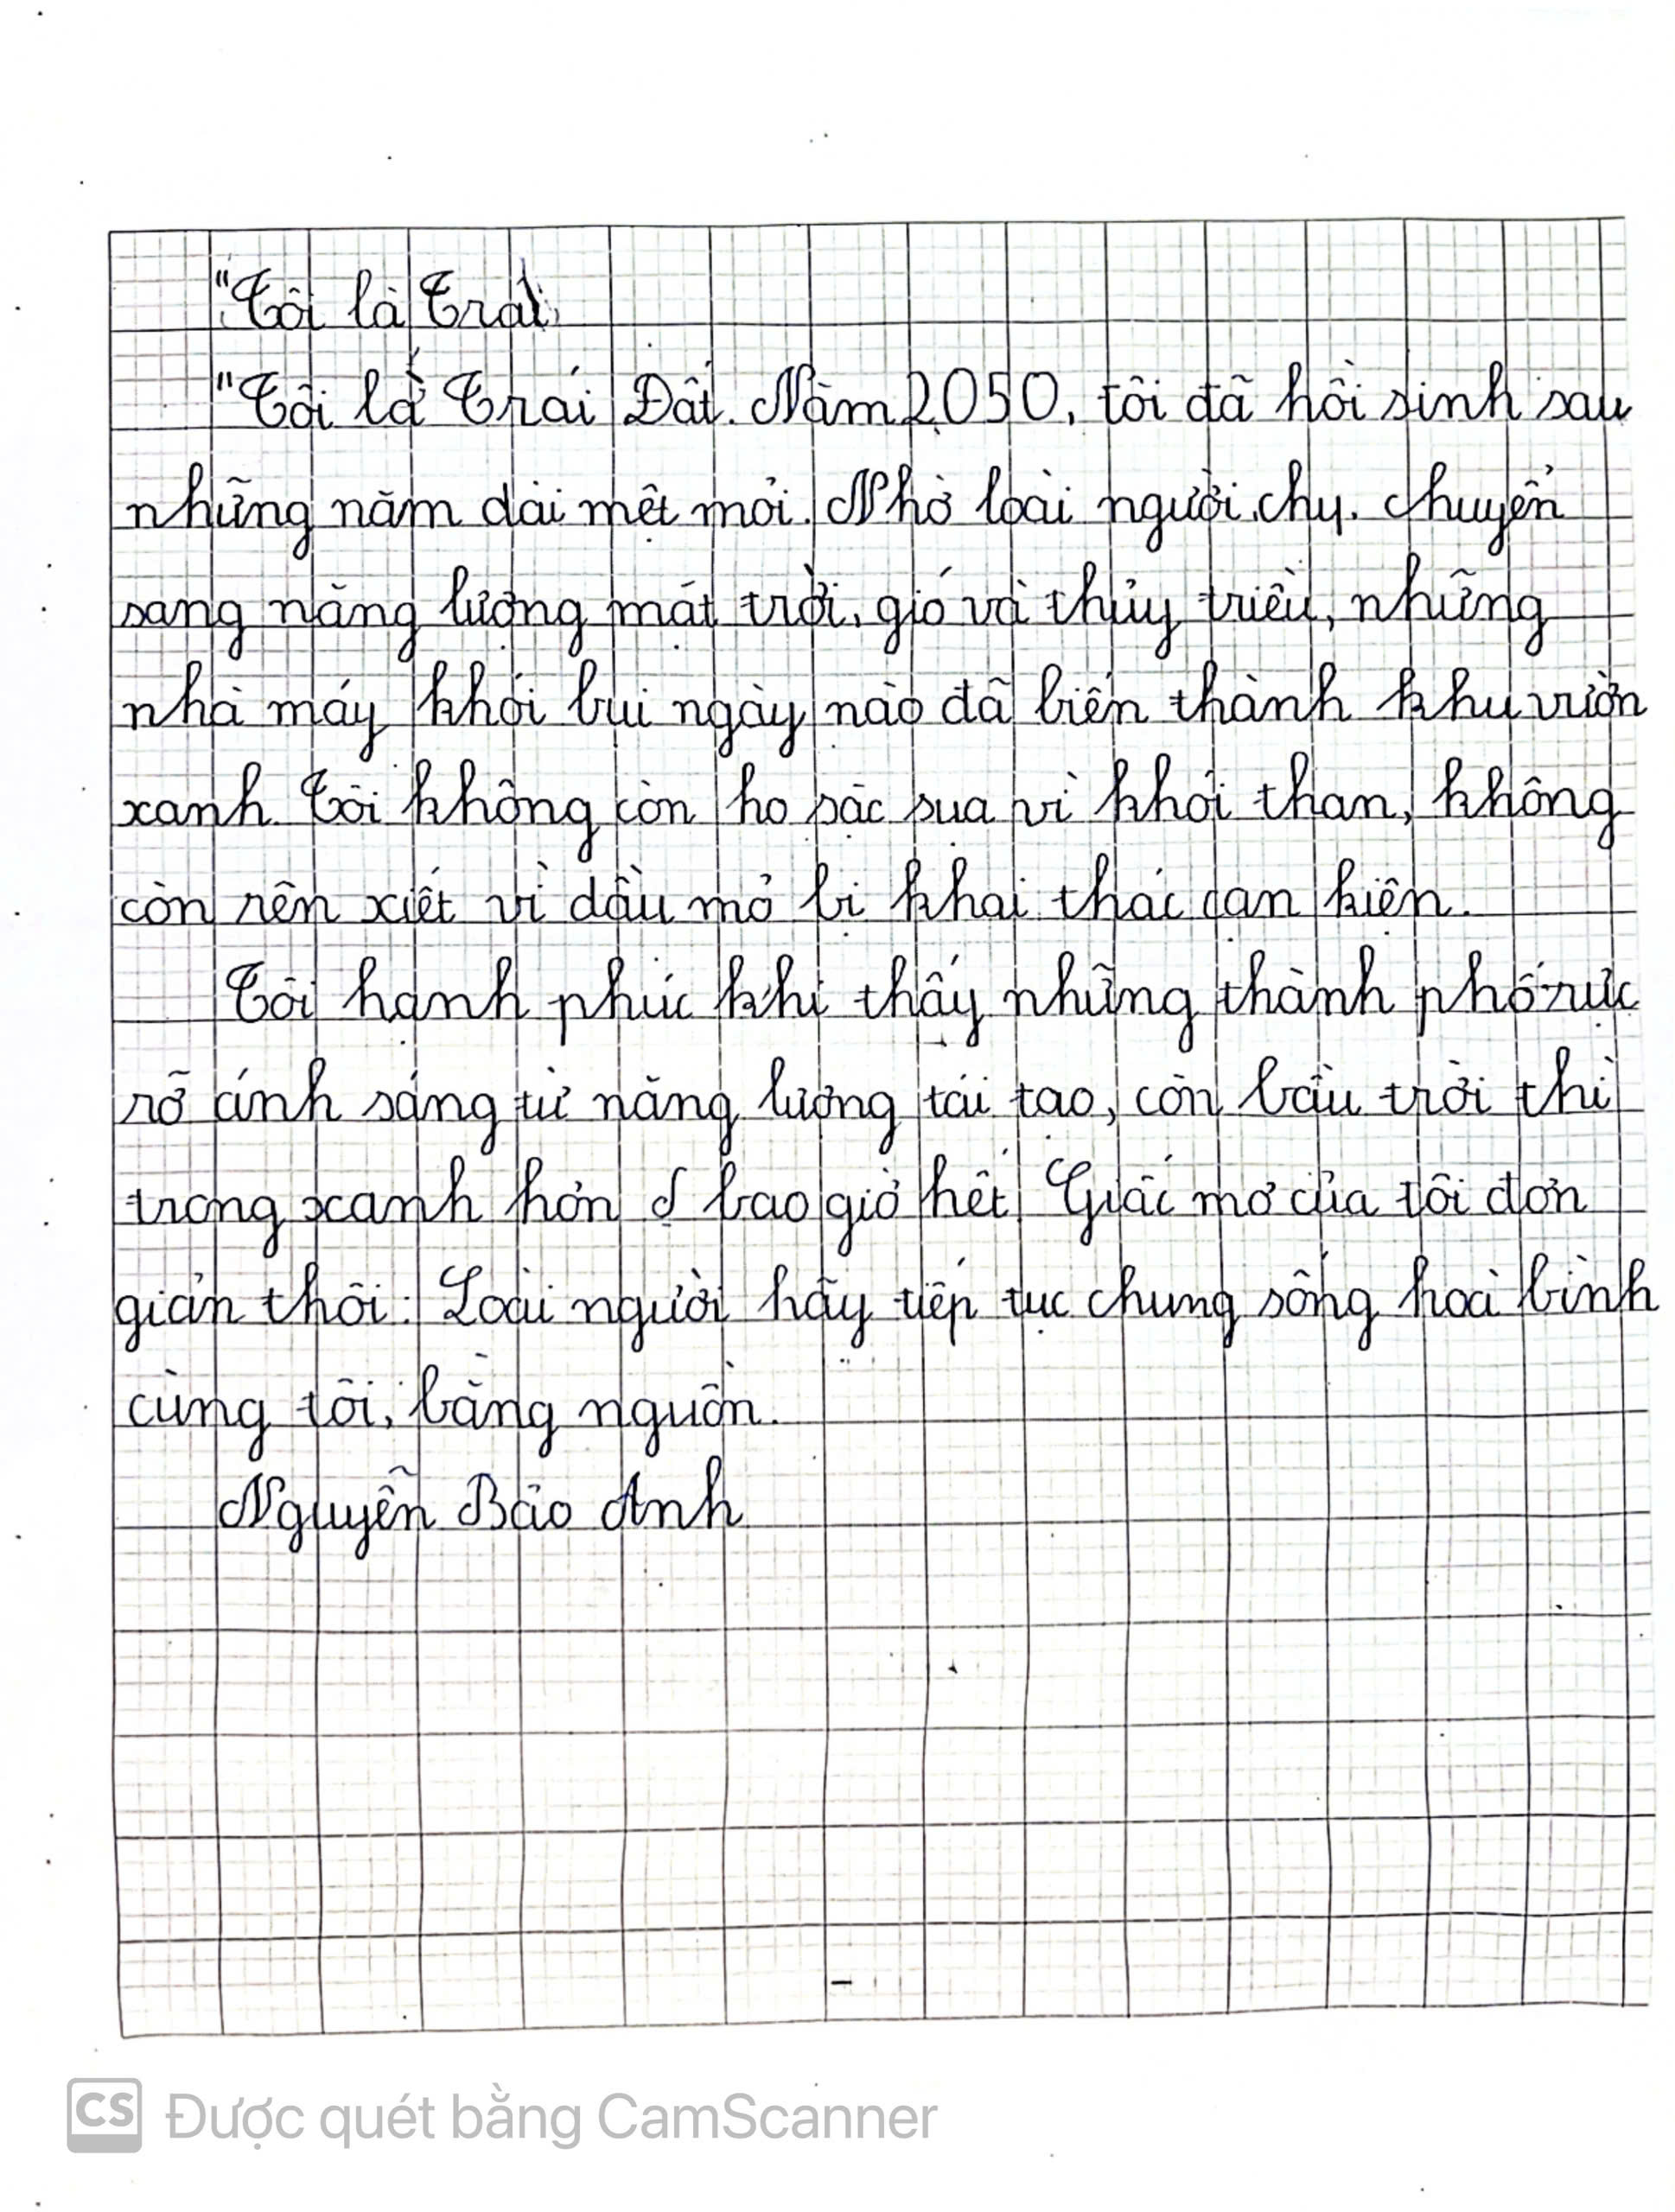 "Tôi là Trái
"Tôi là Trái Đất. Năm 2050, tôi đã hồi sinh sau
những năm dài mệt mỏi. Nhờ loài người, chy. chuyển
sang năng lượng mặt trời, gió và thủy triều, những
nhà máy khói bụi ngày nào đã biến thành khu vườn
xanh. Tôi không còn ho sặc sụa vì khói than, không
còn rên xiết vì dầu mỏ bị khai thác cạn kiện.
Tôi hạnh phúc khi thấy những thành phố rực
rỡ ánh sáng từ năng lượng tái tạo, còn bầu trời thì
trong xanh hơn bao giờ hết. Giấc mơ của tôi đơn
giản thôi: Loài người hãy tiếp tục chung sống hoà bình
cùng tôi, bằng nguồn.
Nguyễn Bảo Anh
CS Được quét bằng CamScanner